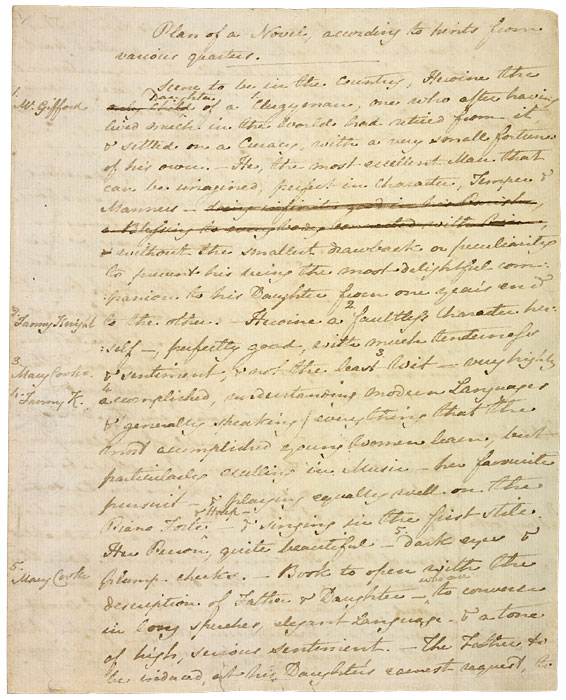 Plan of a Novel, according to hints from
various quarters.
Scene to be in the Country, Heroine the
1. Mr. Gifford
Daughter
only Child of a 1 Clergyman, one who after having
lived much in the World had retired from it
& settled on a Curacy, with a very small fortune
of his own. - He, the most excellent Man that
can be imagined, perfect in Character, Temper &
Manners - 
a Blessing to every body connected with him,
& without the smallest drawback or peculiarity
to prevent his being the most delightful com-
:panion to his Daughter from one year's end
2. Fanny Knight
to the other. - Heroine a 2 faultless Character her-
:self -, perfectly good, with much tenderness
3. Mary Cooke
& sentiment, & not the least 3 Wit - very highly
4. Fanny K.
4 accomplished, understanding modern Languages
& generally speaking) everything that the
most accomplished young Women learn, but
particularly excelling in Music - her favourite
pursuit - & playing equally well on the
& Harp -
Piano Forte - & singing in the first stile.
Her Person, quite beautiful - 5 dark eyes &
5. Mary Cooke
plump cheeks. - Book to open with the
description of Father & Daughter -
who are
to converse
in long speeches, elegant Language - & a tone
of high, serious sentiment. - The Father to
be induced, at his Daughter's earnest request, to